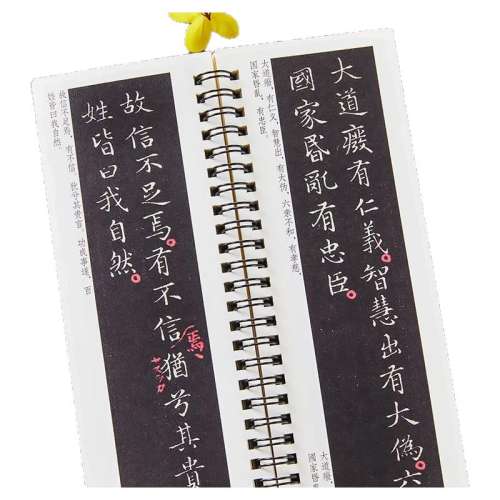 大道癈有仁義。智慧出有大偽。六
國家昏亂有忠臣。
大道癈，有仁义。智慧出，有大伪。六亲不和，有孝慈。
国家昏乱，有忠臣。
大道癈
国家昏
故信不足焉。有不信猶兮其貴
焉
姓皆曰我自然。
故信不足焉，有不信。犹兮其贵言。功成事遂，百
姓皆曰我自然。